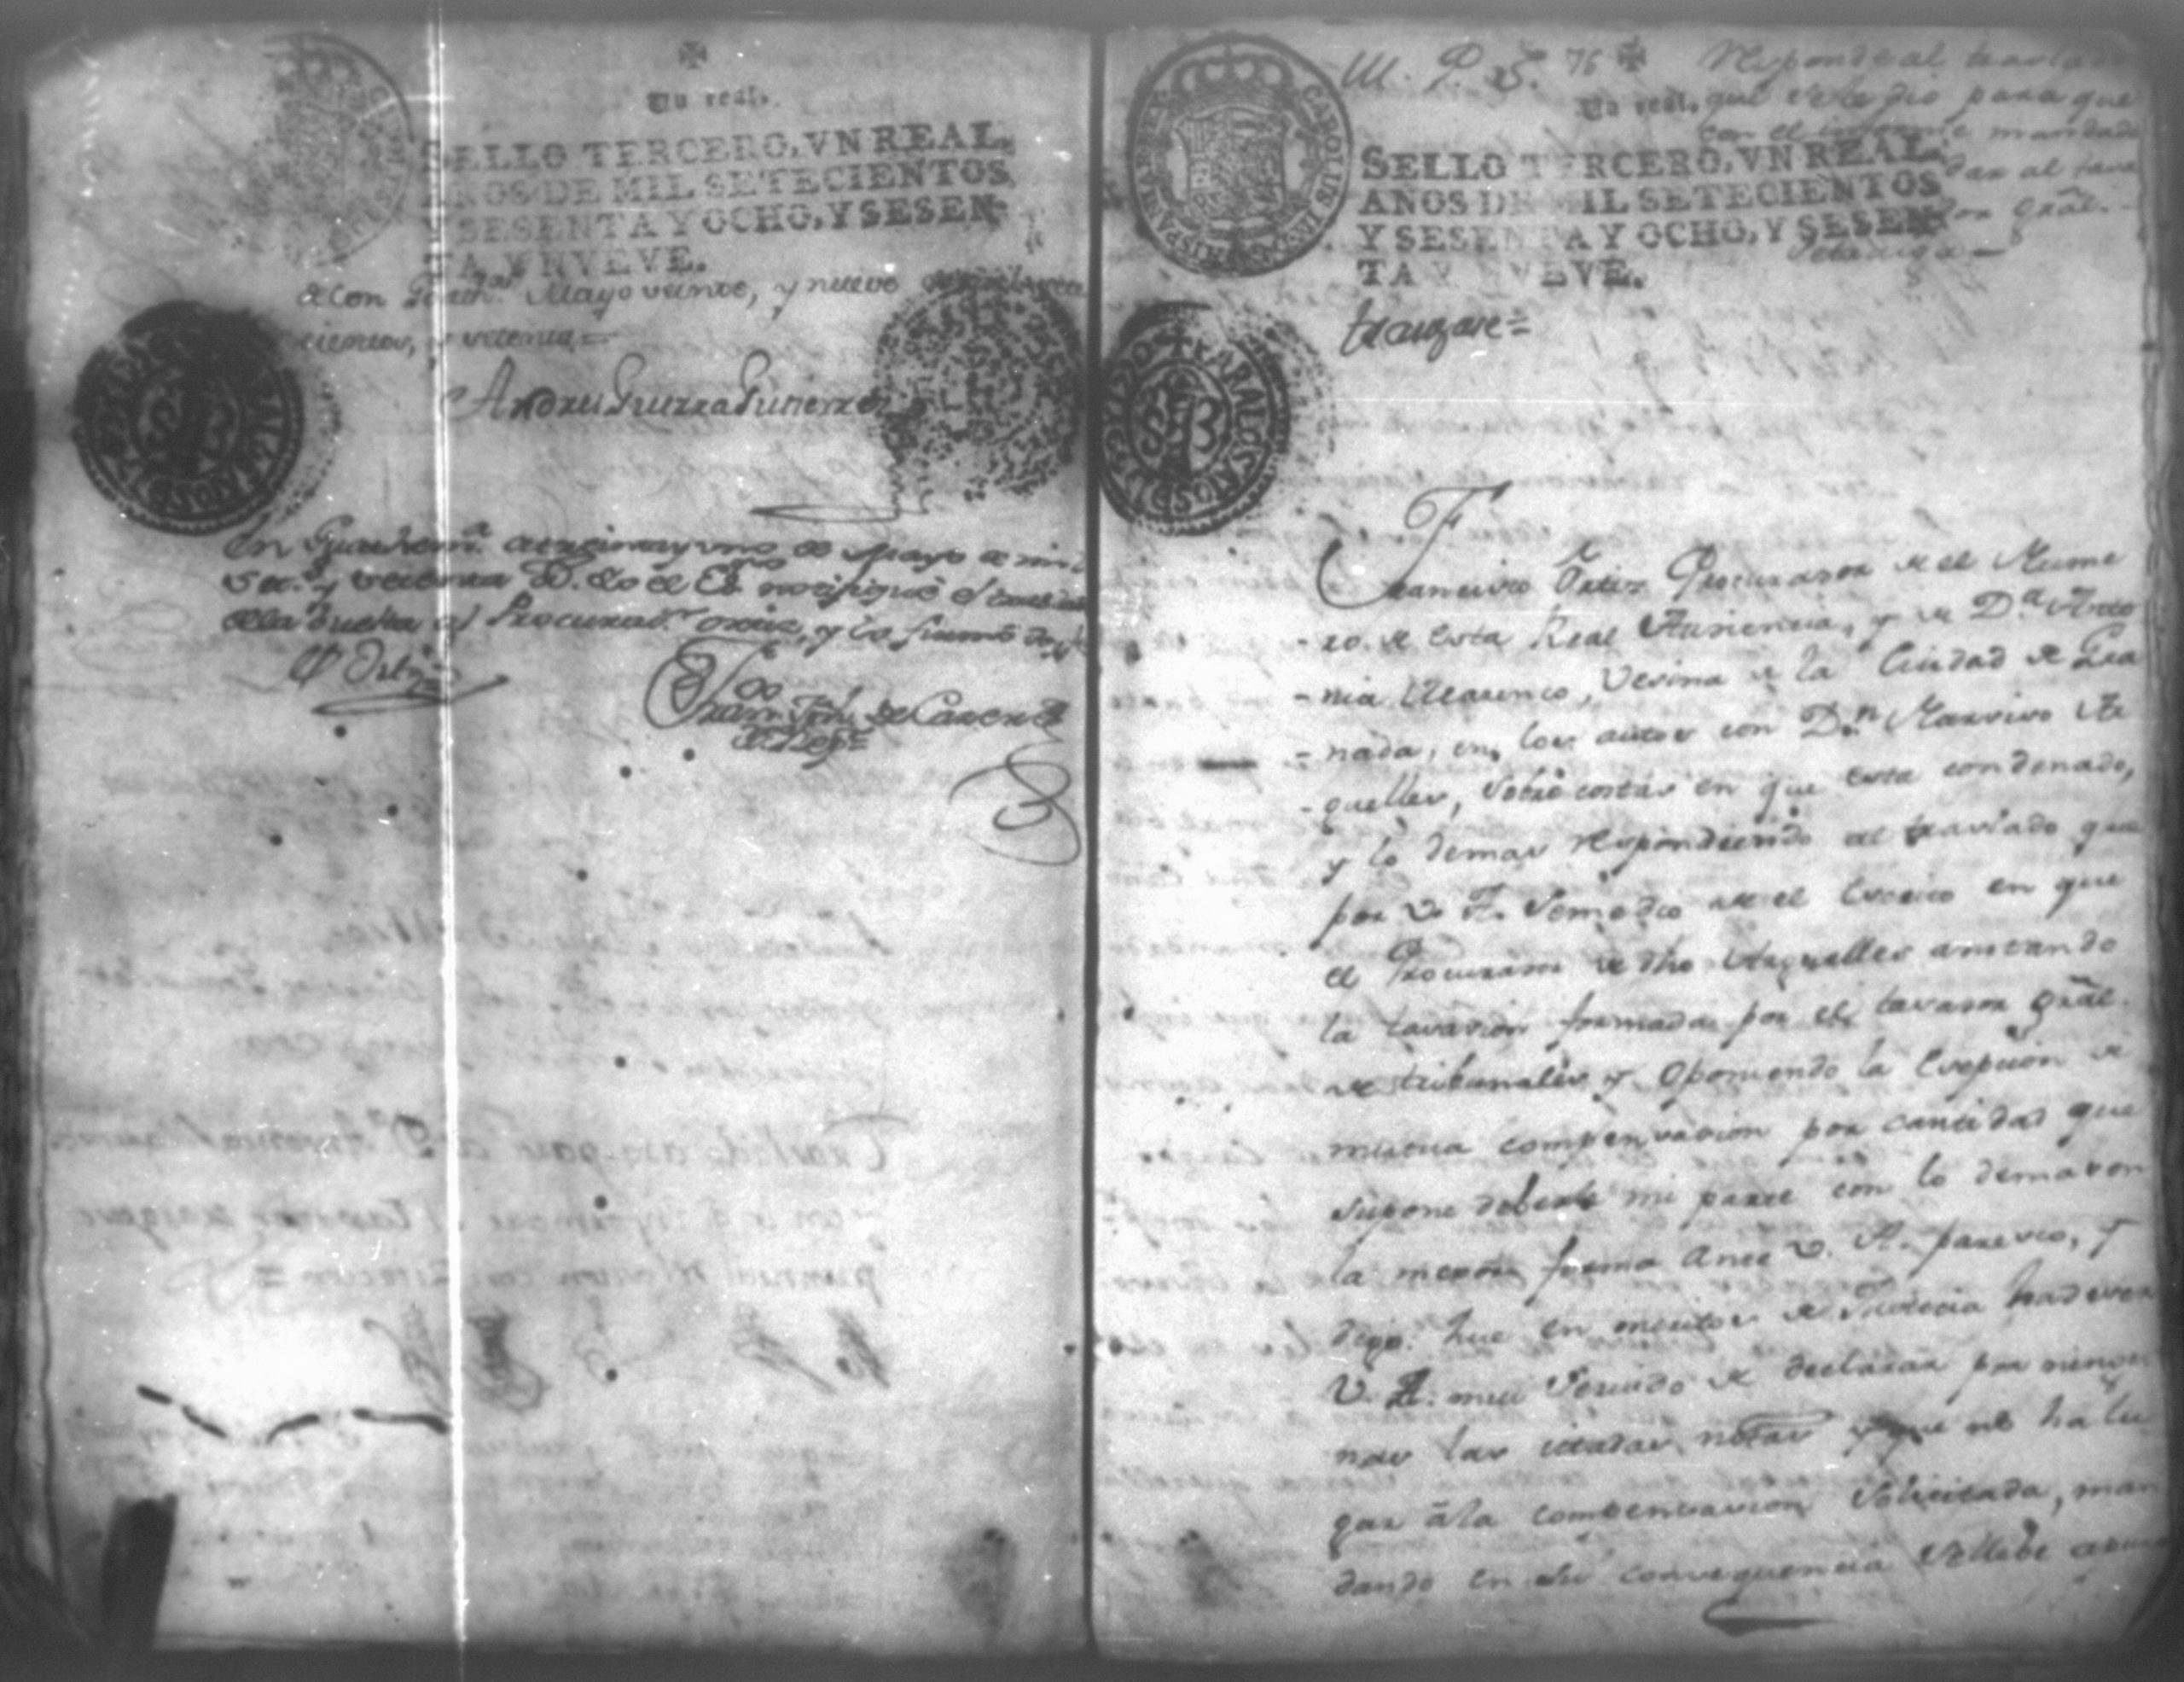 Un real.
SELLO TERCERO, VN REAL,
AÑOS DE MIL SETECIENTOS,
Y SESENTA Y OCHO, Y SESEN-
TA Y NVEVE.
Mayo veinte, y nueve
cientos, y setenta =
Andres Guerra Gutierrez
En Guathem.ª a treinta y uno de Mayo de mil
set.s y setenta a.s Yo el Es.no notifiqué el traslado
de la buelta al Procurad.or Ortiz, y lo firmó doy fe
Ortiz
Fran.co Jph. de Cardenas
M. P. S. 76
Responde al traslado
que se le dio para que
con el informe mandado
dar al tasa
dor gral.
Un real.
SELLO TERCERO, VN REAL,
AÑOS DE MIL SETECIENTOS
Y SESENTA Y OCHO, Y SESEN-
TA Y NVEVE.
CAROLUS III D G HISPANIAR REX
Francisco Ortiz Procurador de el Nume
- ro de esta Real Audiencia, y de D.ª Anto
- nia Marenco, Vesina de la Ciudad de Gra
- nada, en los autos con D.n Narciso Ar
- guelles, sobre costas en que esta condenado,
y lo demas respondiendo al traslado que
por V. A. seme dio de el escrito en que
el Procurador de dho Arguelles anotando
la tasasion formada por el tasador gral.
de tribunales y oponiendo la excepsion de
mutua compensasion por cantidad que
supone deberle mi parte con lo demas en
la mexor forma ante V. A. paresco, y
digo: que en meritos de Justicia ha de ser
V. A. mui servido de declarar por
nas las citadas notas y que no ha lu
gar á la compensasion solicitada, man
dando en su consequencia se lleve a